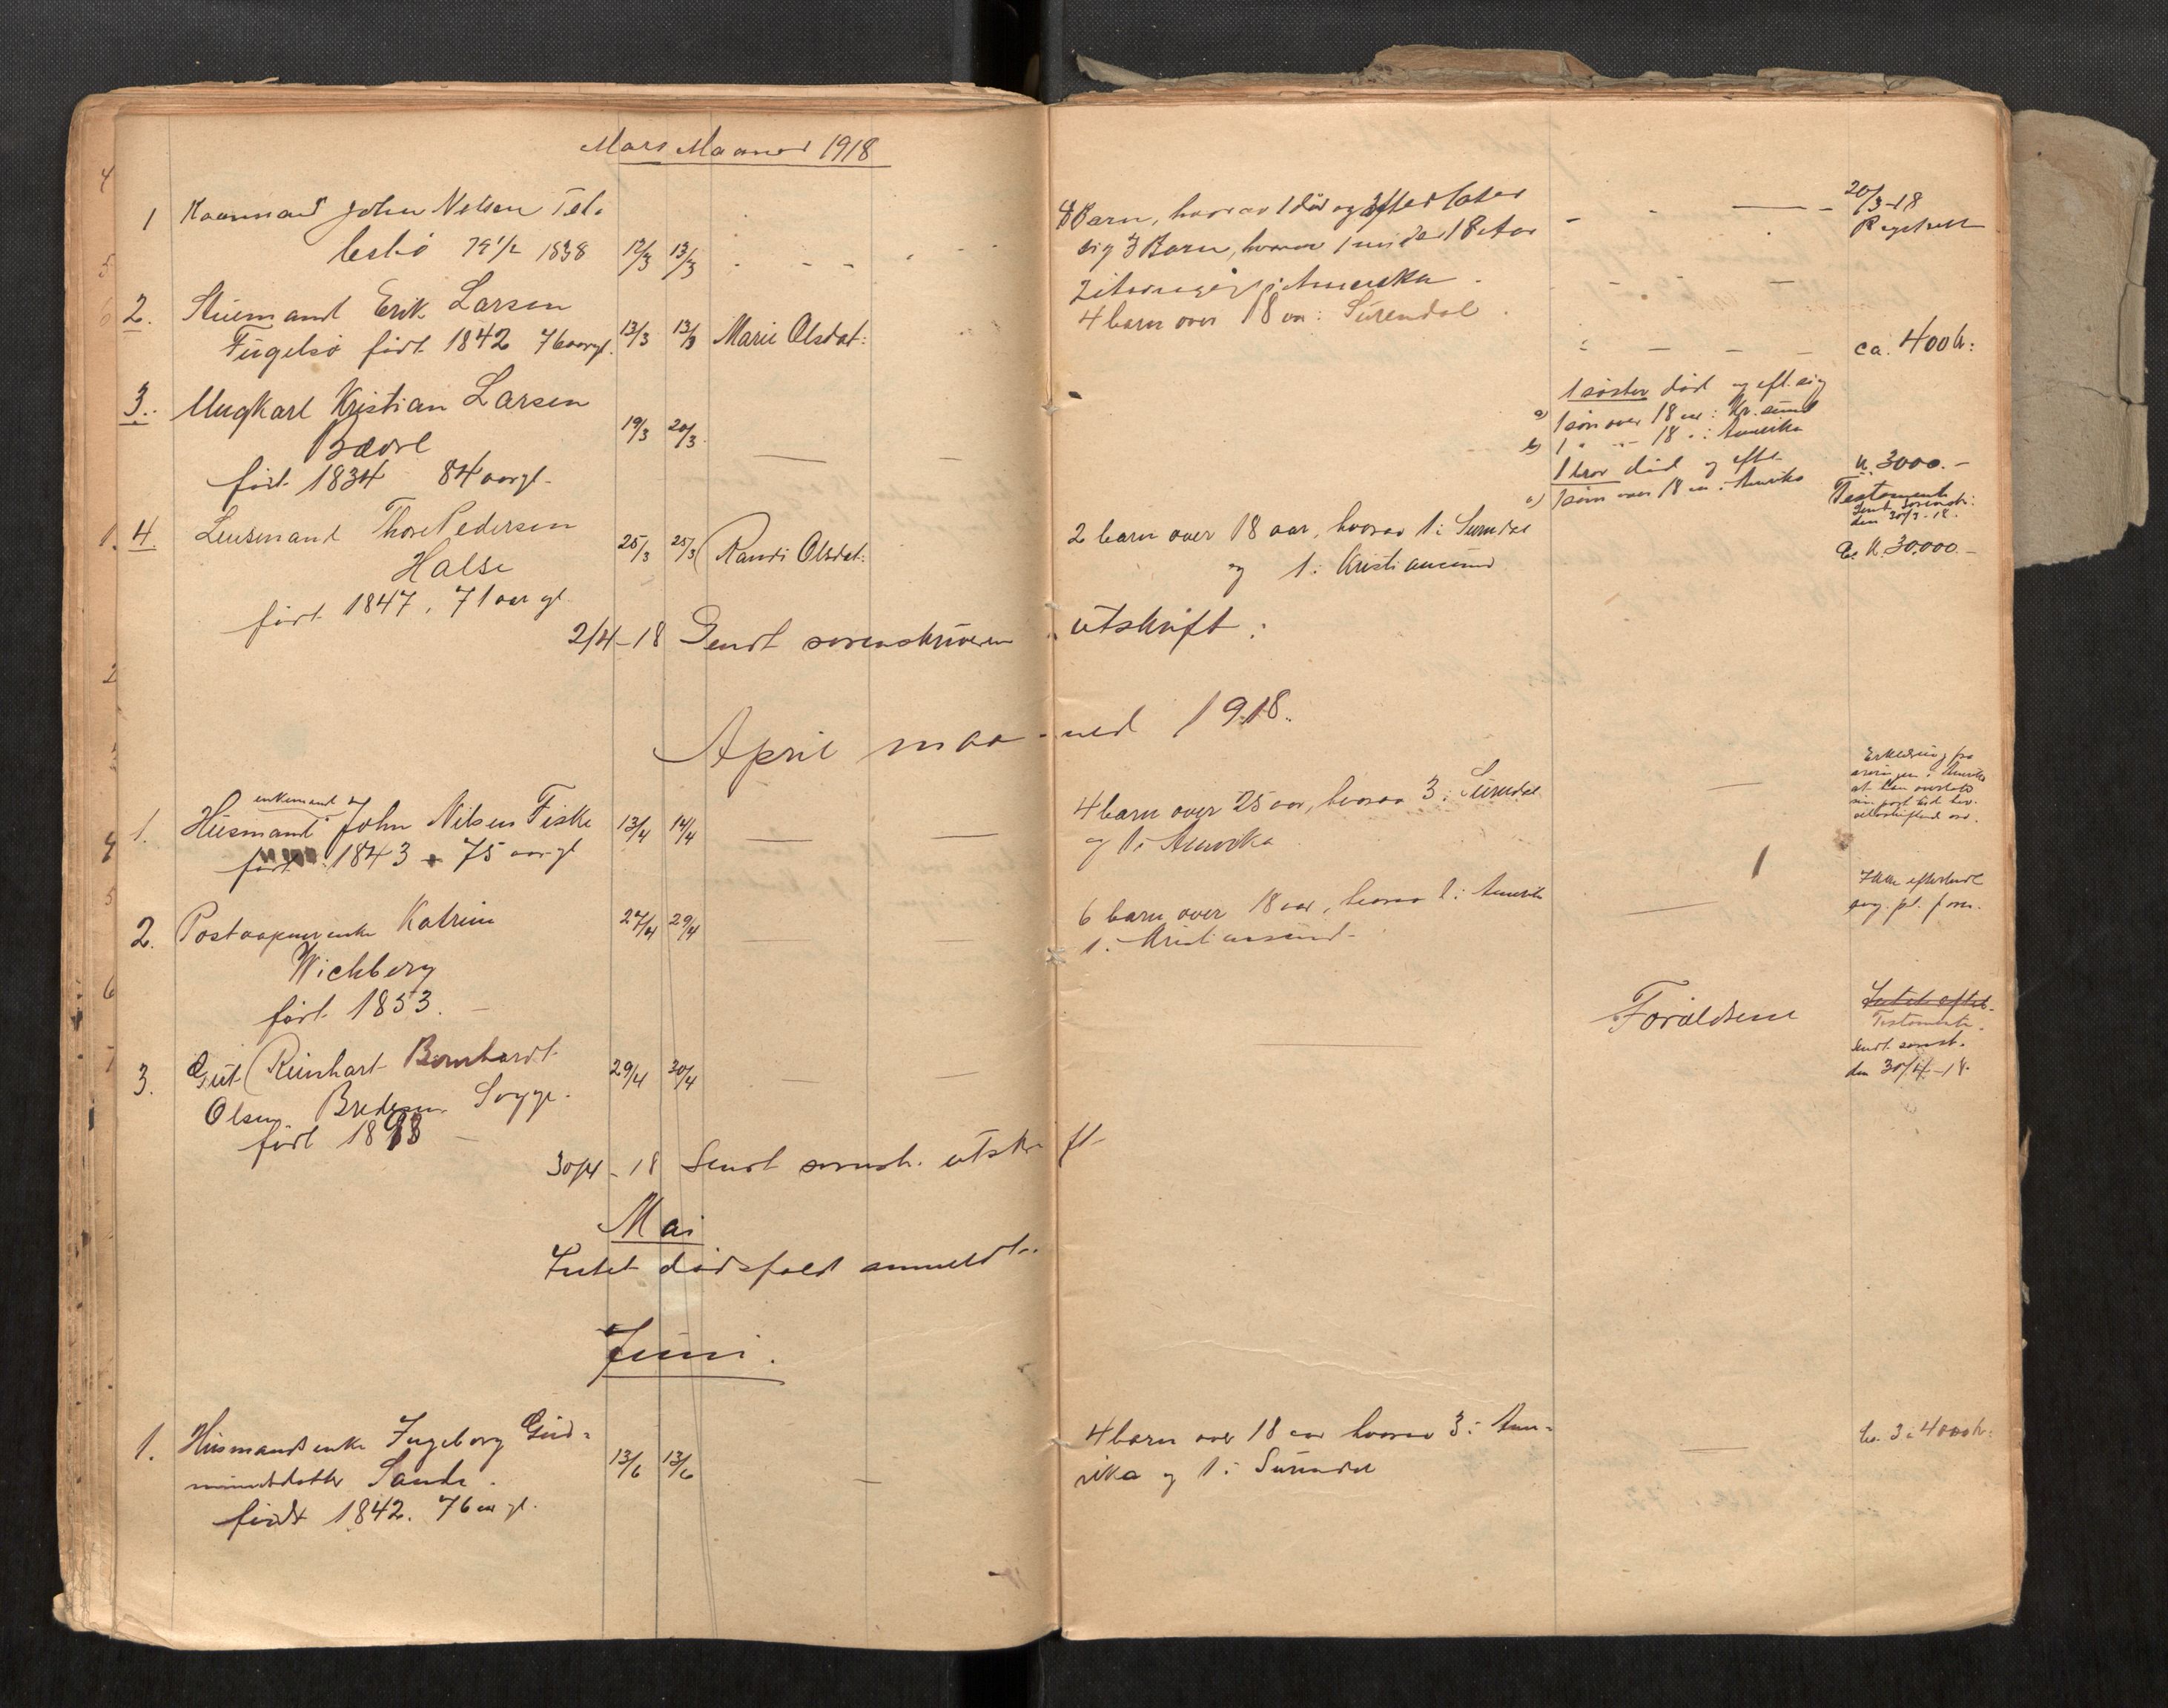 Mars Maaned 1918
1 Kaarmand John Nelsen Tel-
lesbø 79 1/2 1838 12/3 13/3
8 Barn, hvorav 1 død og efterlater
sig 3 Barn, hvorav 1 under 18 Aar
i Amerika
20/3-18
Registrert
2. Huusmand Erik Larsen
Fugelsø født 1842 76 aar gl. 13/3 13/3 Marie Olsdat:
4 barn over 18 aar i Surendal
ca. 400 kr:
3. Ungkarl Kristian Larsen
Bævre
født 1834 84 aar gl. 19/3 20/3
1 søster død og eft. sig
a) 1 søn over 18 aar i Kr.sund
b) 1 " - 18 " i Amerika
1 bror død og eft.
a) 1 søn over 18 aar i Amerika
kr. 3000.-
Testamente
sendt sorenskr:
den 30/3-18.
4. Lensmand Thore Pedersen
Halse
født 1847. 71 aar gl. 25/3 25/3 Randi Olsdat:
2 barn over 18 aar, hvorav 1 i Surendal
og 1 i Kristiansund
Ca. kr. 30.000.-
2/4-18 Sendt sorenskriveren utskrift.
April maaned 1918.
1. Husmand enkemand John Nilsen Fiske
født 1843 - 75 aar gl 13/4 14/4
4 barn over 25 aar, hvorav 3 i Surendal
og 1 i Amerika
Erklæring fra
arvingen i Amerika
at han overlater
sin part
2. Postaapnerenke Katrine
Wichberg
født 1853. 27/4 29/4
6 barn over 18 aar, hvorav 1 i Amerik
1 i Kristiansund
Ikke efterladt
3. Gut Reinhart Bernhardt
Olsen Bredesen Sogge.
født 1898 29/4 30/4
Forældrene
Intet efterl.
Testamente.
Sendt sorensk.
den 30/4-18.
30/4-18 Sendt sorensk. utskrift
Mai
Intet dødsfald anmeldt.
Juni.
1. Husmandsenke Ingeborg Gud-
mundsdatter Sande.
født 1842. 76 aar gl. 13/6 13/6
4 barn over 18 aar hvorav 3 i Ame-
rika og 1 i Surendal
ca. 3 à 4000 kr: